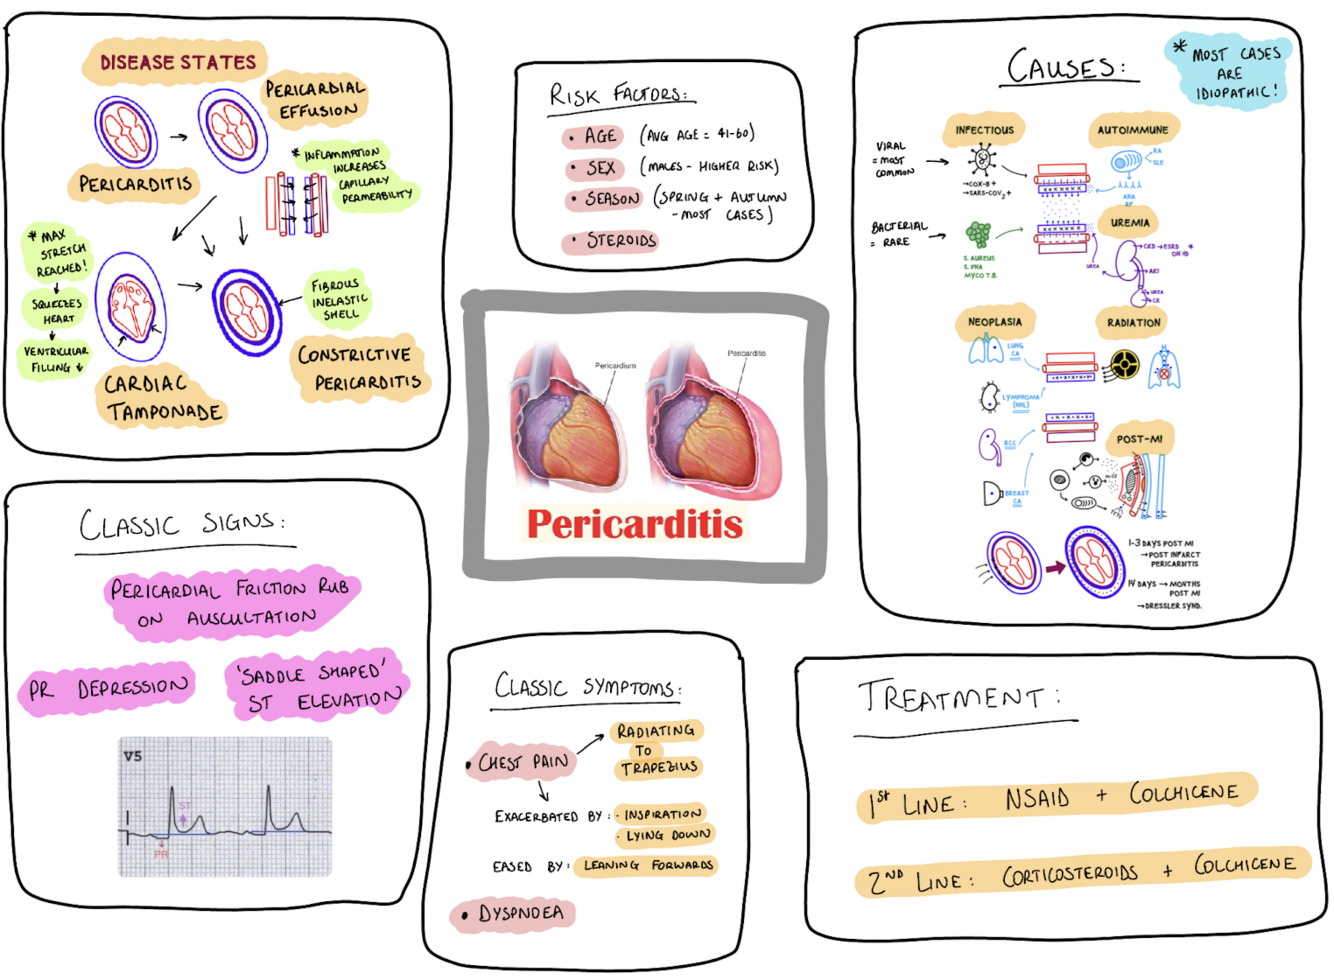 DISEASE STATES
PERICARDIAL
EFFUSION
PERICARDITIS
* INFLAMMATION
INCREASES
CAPILLARY
PERMEABILITY
* MAX
STRETCH
REACHED!
SQUEEZES
HEART
VENTRICULAR
FILLING ↓
CARDIAC
TAMPONADE
FIBROUS
INELASTIC
SHELL
CONSTRICTIVE
PERICARDITIS
RISK FACTORS:
• AGE (AVG AGE = 41-60)
• SEX (MALES - HIGHER RISK)
• SEASON (SPRING + AUTUMN
- MOST CASES)
• STEROIDS
Pericardium
Pericarditis
Pericarditis
CAUSES:
* MOST CASES
ARE
IDIOPATHIC!
INFECTIOUS
VIRAL
= MOST
COMMON
→ COX-B +
→ SARS-COV2 +
BACTERIAL
= RARE
S. AUREUS
S. PNA
MYCO T.B.
AUTOIMMUNE
RA
SLE
ANA
RF
UREMIA
UREA
CKD → ESRD *
ON HD
AKI
UREA
CR
NEOPLASIA
LUNG
CA
LYMPHOMA
(NHL)
RCC
BREAST
CA
RADIATION
POST-MI
1-3 DAYS POST MI
→ POST INFARCT
PERICARDITIS
14 DAYS → MONTHS
POST MI
→ DRESSLER SYND.
CLASSIC SIGNS:
PERICARDIAL FRICTION RUB
ON AUSCULTATION
PR DEPRESSION
'SADDLE SHAPED'
ST ELEVATION
V5
ST
PR
CLASSIC SYMPTOMS:
• CHEST PAIN
RADIATING
TO
TRAPEZIUS
EXACERBATED BY: · INSPIRATION
· LYING DOWN
EASED BY: LEANING FORWARDS
• DYSPNOEA
TREATMENT:
1ST LINE: NSAID + COLCHICENE
2ND LINE: CORTICOSTEROIDS + COLCHICENE